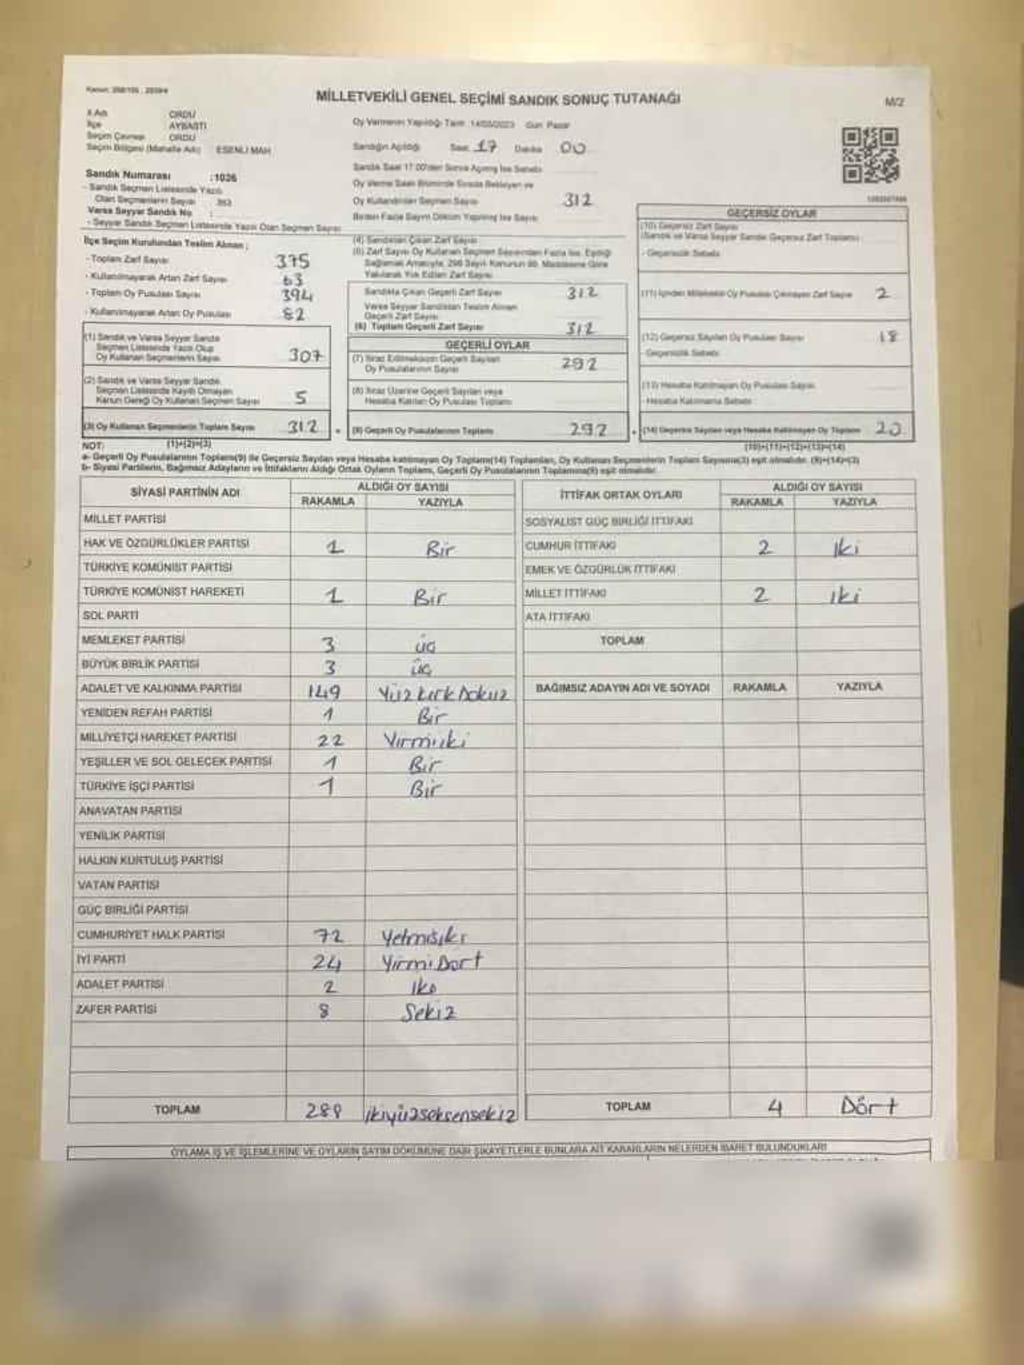 MİLLETVEKİLİ GENEL SEÇİMİ SANDIK SONUÇ TUTANAĞI
M/2
İl Adı ORDU
İlçe AYBASTI
Seçim Çevresi ORDU
Seçim Bölgesi (Mahalle Adı) ESENLİ MAH
Oy Vermenin Yapıldığı Tarih 14/05/2023 Gün Pazar
Sandığın Açıldığı Saat 17 Dakika 00
Sandık Numarası :1026
- Sandık Seçmen Listesinde Yazılı
Olan Seçmenlerin Sayısı 363
Varsa Seyyar Sandık No :
- Seyyar Sandık Seçmen Listesinde Yazılı Olan Seçmen Sayısı
Sandık Saat 17:00'den Sonra Açılmış İse Sebebi
Oy Verme Saati Bitiminde Sırada Bekleyen ve
Oy Kullandırılan Seçmen Sayısı 312
Birden Fazla Sayım Döküm Yapılmış İse Sayısı
İlçe Seçim Kurulundan Teslim Alınan ;
- Toplam Zarf Sayısı 375
- Kullanılmayarak Artan Zarf Sayısı 63
- Toplam Oy Pusulası Sayısı 394
- Kullanılmayarak Artan Oy Pusulası 82
(1) Sandık ve Varsa Seyyar Sandık
Seçmen Listesinde Yazılı Olup
Oy Kullanan Seçmenlerin Sayısı 307
(2) Sandık ve Varsa Seyyar Sandık
Seçmen Listesinde Kayıtlı Olmayan
Kanun Gereği Oy Kullanan Seçmen Sayısı 5
(3) Oy Kullanan Seçmenlerin Toplam Sayısı 312
(1)+(2)=(3)
(4) Sandıktan Çıkan Zarf Sayısı
(5) Zarf Sayısı Oy Kullanan Seçmen Sayısından Fazla İse, Eşitliği
Sağlamak Amacıyla, 298 Sayılı Kanunun 98. Maddesine Göre
Yakılarak Yok Edilen Zarf Sayısı
Sandıkta Çıkan Geçerli Zarf Sayısı 312
Varsa Seyyar Sandıktan Teslim Alınan
Geçerli Zarf Sayısı
(6) Toplam Geçerli Zarf Sayısı 312
GEÇERLİ OYLAR
(7) İtiraz Edilmeksizin Geçerli Sayılan
Oy Pusulalarının Sayısı 292
(8) İtiraz Üzerine Geçerli Sayılan veya
Hesaba Katılan Oy Pusulası Toplamı
(9) Geçerli Oy Pusulalarının Toplamı 292
GEÇERSİZ OYLAR
(10) Geçersiz Zarf Sayısı
(Sandık ve Varsa Seyyar Sandık Geçersiz Zarf Toplamı)
- Geçersizlik Sebebi
(11) İçinden Milletvekili Oy Pusulası Çıkmayan Zarf Sayısı 2
(12) Geçersiz Sayılan Oy Pusulası Sayısı 18
- Geçersizlik Sebebi
(13) Hesaba Katılmayan Oy Pusulası Sayısı
- Hesaba Katılmama Sebebi
(14) Geçersiz Sayılan veya Hesaba Katılmayan Oy Toplamı 20
(10)+(11)+(12)+(13)=(14)
NOT:
a- Geçerli Oy Pusulalarının Toplamı(9) ile Geçersiz Sayılan veya Hesaba katılmayan Oy Toplamı(14) Toplamları, Oy Kullanan Seçmenlerin Toplam Sayısına(3) eşit olmalıdır. (9)+(14)=(3)
b- Siyasi Partilerin, Bağımsız Adayların ve İttifakların Aldığı Ortak Oyların Toplamı, Geçerli Oy Pusulalarının Toplamına(9) eşit olmalıdır.
SİYASİ PARTİNİN ADI
ALDIĞI OY SAYISI
RAKAMLA YAZIYLA
MİLLET PARTİSİ
HAK VE ÖZGÜRLÜKLER PARTİSİ 1 Bir
TÜRKİYE KOMÜNİST PARTİSİ
TÜRKİYE KOMÜNİST HAREKETİ 1 Bir
SOL PARTİ
MEMLEKET PARTİSİ 3 üç
BÜYÜK BİRLİK PARTİSİ 3 üç
ADALET VE KALKINMA PARTİSİ 149 Yüz kırk Dokuz
YENİDEN REFAH PARTİSİ 1 Bir
MİLLİYETÇİ HAREKET PARTİSİ 22 Yirmiiki
YEŞİLLER VE SOL GELECEK PARTİSİ 1 Bir
TÜRKİYE İŞÇİ PARTİSİ 1 Bir
ANAVATAN PARTİSİ
YENİLİK PARTİSİ
HALKIN KURTULUŞ PARTİSİ
VATAN PARTİSİ
GÜÇ BİRLİĞİ PARTİSİ
CUMHURİYET HALK PARTİSİ 72 Yetmişiki
İYİ PARTİ 24 Yirmi Dört
ADALET PARTİSİ 2 iki
ZAFER PARTİSİ 8 Sekiz
TOPLAM 288 ikiyüzseksensekiz
İTTİFAK ORTAK OYLARI
ALDIĞI OY SAYISI
RAKAMLA YAZIYLA
SOSYALİST GÜÇ BİRLİĞİ İTTİFAKI
CUMHUR İTTİFAKI 2 iki
EMEK VE ÖZGÜRLÜK İTTİFAKI
MİLLET İTTİFAKI 2 iki
ATA İTTİFAKI
TOPLAM
BAĞIMSIZ ADAYIN ADI VE SOYADI RAKAMLA YAZIYLA
TOPLAM 4 Dört
OYLAMA İŞ VE İŞLEMLERİNE VE OYLARIN SAYIM DÖKÜMÜNE DAİR ŞİKAYETLERLE BUNLARA AİT KARARLARIN NELERDEN İBARET BULUNDUKLARI